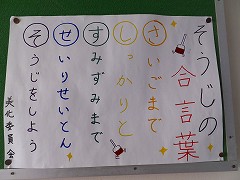 そうじの
合言葉
さいごまで
しっかりと
すみずみまで
せいりせいとん
そうじをしよう
美化委員会